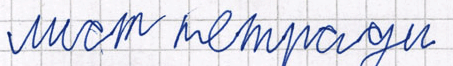 лист тетради